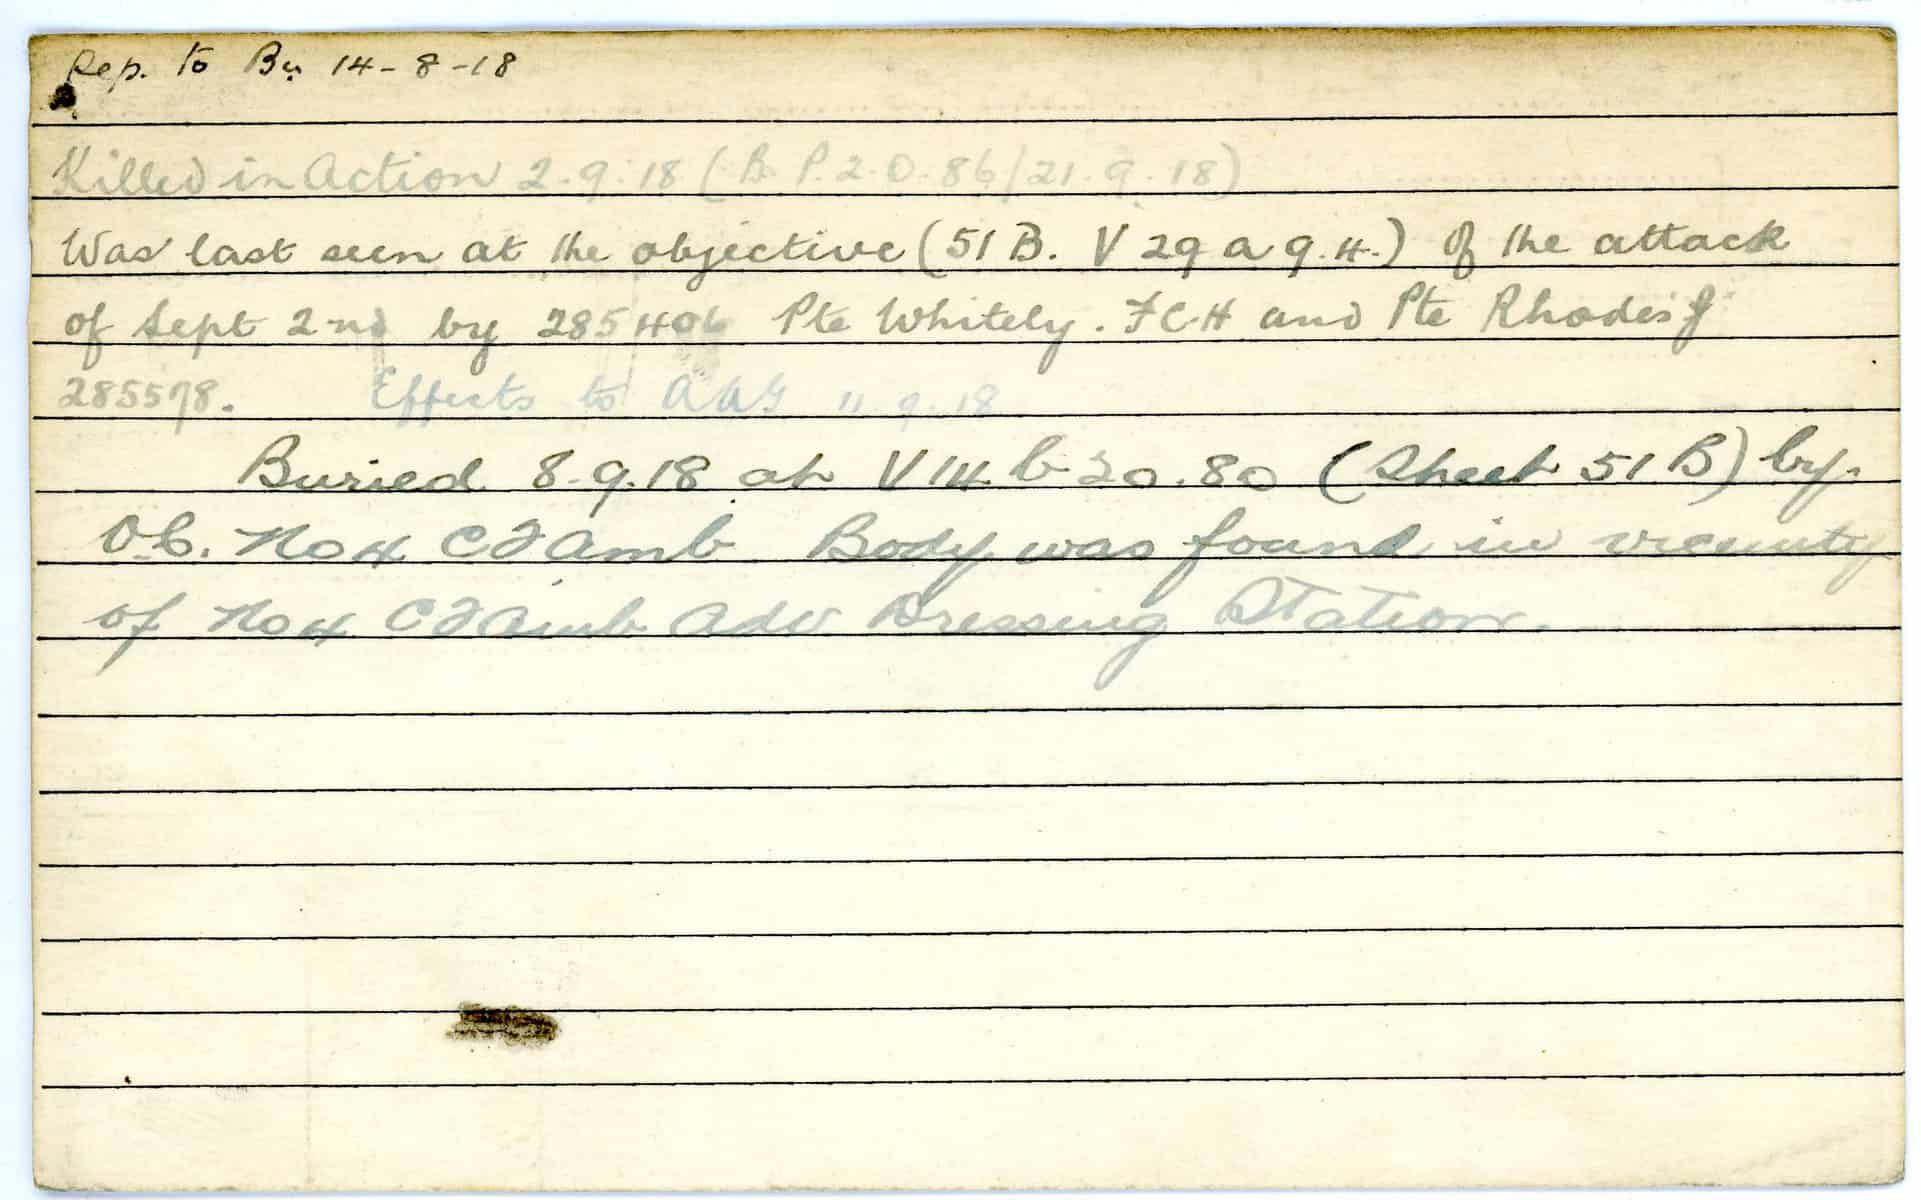 Rep. to Bn 14-8-18
Killed in Action 2.9.18 (B.P.2.0.86/21.9.18)
Was last seen at the objective (51 B. V 29 a 9.4.) of the attack
of Sept 2nd by 285406 Pte Whitely. FCH and Pte Rhodes J
285578. Effects to AAG 11 9.18
Buried 8.9.18 at V 14 b 20.80 (Sheet 51 B) by
O.C. No 4 C F Amb Body was found in vicinity
of No 4 C F Amb Adv Dressing Station.